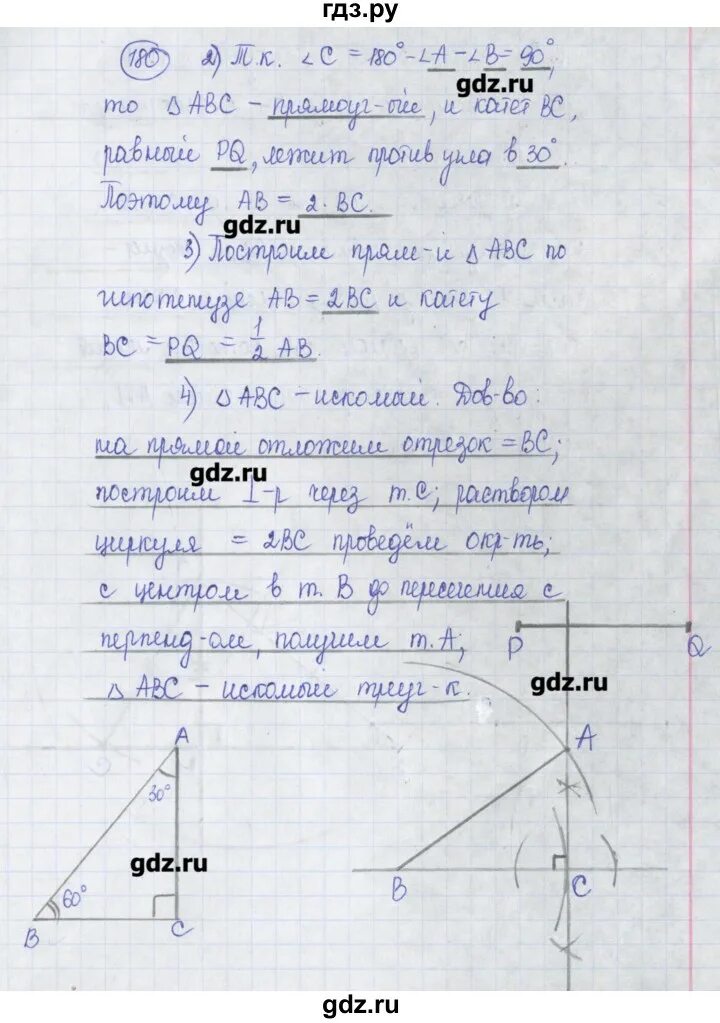 гдз.ру
180 2) Т.к. ∠C = 180° - ∠A - ∠B = 90°,
gdz.ru
то △ABC - прямоуг-ый, и катет BC,
равный PQ, лежит против угла в 30°.
Поэтому AB = 2·BC.
gdz.ru
3) Построим прям-й △ABC по
гипотенузе AB = 2BC и катету
BC = PQ = 1/2 AB.
4) △ABC - искомый. Дов-во:
на прямой отложим отрезок = BC;
gdz.ru
построим ⊥-р через т. C; раствором
циркуля = 2BC проведём окр-ть;
с центром в т. B до пересечения с
перпенд-ом, получим т. A;
P Q
gdz.ru
△ABC - искомый треуг-к.
A
A
30°
gdz.ru
60°
B C
B C
gdz.ru